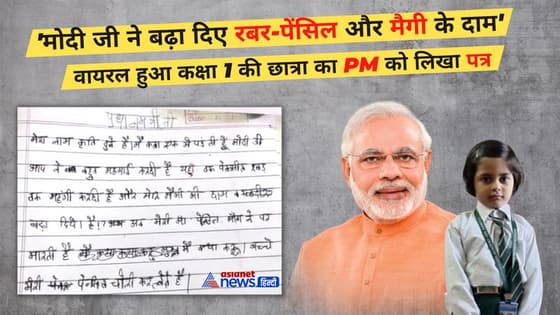 'मोदी जी ने बढ़ा दिए रबर-पेंसिल और मैगी के दाम'
वायरल हुआ कक्षा 1 की छात्रा का PM को लिखा पत्र
मेरा नाम कृति दुबे है। मैं कक्षा एक में पढ़ती हूँ मोदी जी
आप ने बहुत महंगाई करदी है यहाँ तक पेनसील रबड़
तक महंगी करदी है और मेरी मैगी की दाम
बढ़ा दिये है। अब मेरी माँ पेंसिल माँगने पर
मारती है मैं क्या करूं। बच्चे
मेरी पेनसिल चोरी कर लेते है।
asianet
news हिन्दी